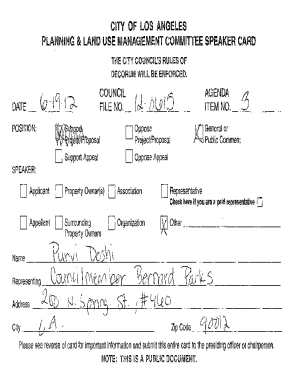 CITY OF LOS ANGELES
PLANNING & LAND USE MANAGEMENT COMMITTEE SPEAKER CARD
THE CITY COUNCIL'S RULES OF
DECORUM WILL BE ENFORCED.
DATE 6-19-12 COUNCIL FILE NO. 12-0615 AGENDA ITEM NO. 3
POSITION: Support Project/Proposal Oppose Project/Proposal General or Public Comment
Support Appeal Oppose Appeal
SPEAKER:
Applicant Property Owner(s) Association Representative
Check here if you are a paid representative
Appellant Surrounding Property Owners Organization Other
Name Purvi Doshi
Representing Councilmember Bernard Parks
Address 200 N. Spring St. #460
City L.A. Zip Code 90012
Please see reverse of card for important information and submit this entire card to the presiding officer or chairperson.
NOTE: THIS IS A PUBLIC DOCUMENT.